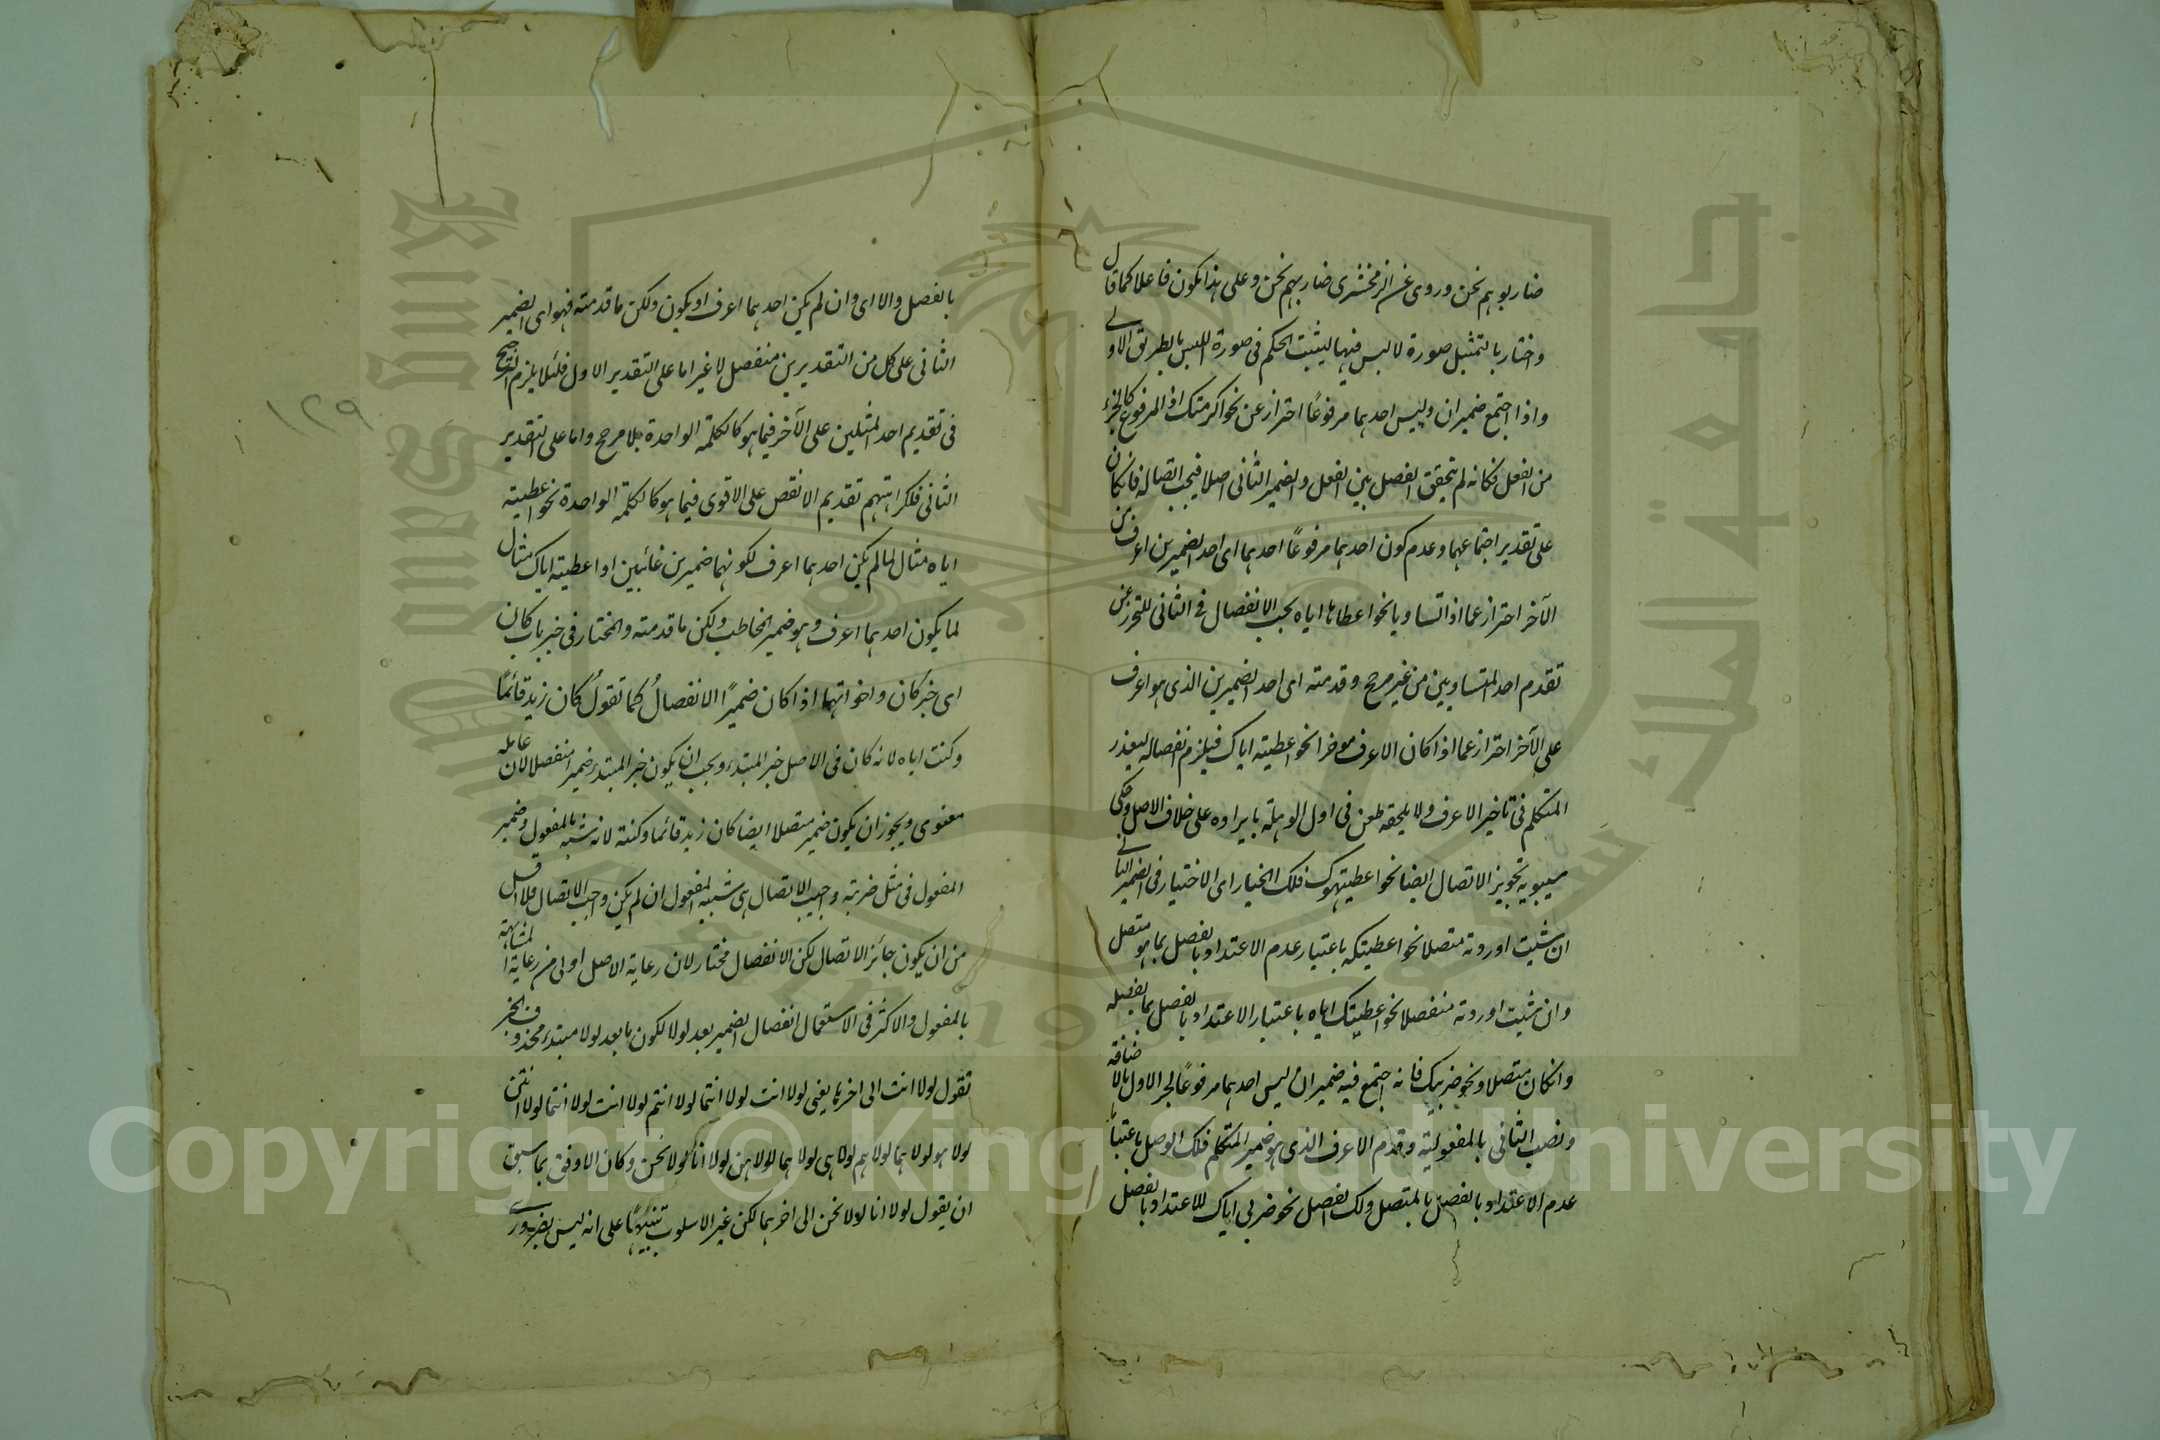 ضاربوهم نحن وروى عن الزمخشري ضاربهم نحن وعلى هذا يكون فاعلا كما قال
واختار بالتمثيل صورة لا لبس فيها ليثبت الحكم في صورة اللبس بالطريق الاولى
واذا اجتمع ضميران وليس احدهما مرفوعًا احتراز عن نحو اكرمتك اذ المرفوع كالجزء
من الفعل فكانه لم يتحقق الفصل بين الفعل والضمير الثاني اصلا فيجب اتصاله فان كان
على تقدير اجتماعهما وعدم كون احدهما مرفوعًا احدهما اى احد الضميرين اعرف من
الآخر احتراز عما اذا تساويا نحو اعطاها اياه يجب الانفصال في الثاني للتحرز عن
تقدم احد المتساويين من غير مرجح وقدمته اى احد الضميرين الذى هو اعرف
على الآخر احتراز عما اذا كان الاعرف موخرا نحو اعطيته اياك فيلزم انفصاله ليعذر
المتكلم في تاخير الاعرف ولا يلحقه طعن في اول الوهلة بايراده على خلاف الاصل وحكى
سيبويه تجويز الاتصال ايضا نحو اعطيتهوك فلك الخيار اى الاختيار في الضمير الثاني
ان شئت اوردته متصلا نحو اعطيتكه باعتبار عدم الاعتداد بالفصل بما هو متصل
وان شئت اوردته منفصلا نحو اعطيتك اياه باعتبار الاعتداد بالفصل بما يفصله
وان كان متصلا ونحو ضربيك فانه اجتمع فيه ضميران ليس احدهما مرفوعًا لجر الاول بالاضافة
ونصب الثاني بالمفعولية وقدم الاعرف الذى هو ضمير المتكلم فلك الوصل باعتبار
عدم الاعتداد بالفصل بالمتصل ولك الفصل نحو ضربي اياك للاعتداد بالفصل
بالفصل والا اى وان لم يكن احدهما اعرف او يكون ولكن ما قدمته فهو اى الضمير
الثاني على كل من التقديرين منفصل لا غير اما على التقدير الاول فلئلا يلزم الترجيح
في تقديم احد المثلين على الآخر فيما هو كالكلمة الواحدة بلا مرجح واما على التقدير
الثاني فلكراهتهم تقديم الانقص على الاقوى فيما هو كالكلمة الواحدة نحو اعطيته
اياه مثال لما لم يكن احدهما اعرف لكونهما ضميرين غائبين او اعطيته اياك مثال
لما يكون احدهما اعرف وهو ضمير المخاطب ولكن ما قدمته والمختار في خبر باب كان
اى خبر كان واخواتها اذا كان ضميرًا الانفصالُ كما تقولُ كان زيد قائمًا
وكنت اياه لانه كان في الاصل خبر المبتدء ويجب ان يكون خبر المبتدء ضميرا منفصلا لان عامله
معنوى ويجوز ان يكون ضمير متصلا ايضا كان زيد قائما وكنته لانه شبه بالمفعول وضمير
المفعول في مثل ضربته واجب الاتصال فشبيه المفعول ان لم يكن واجب الاتصال فلا اقل
من ان يكون جائز الاتصال لكن الانفصال مختار لان رعاية الاصل اولى من رعاية المشابهة
بالمفعول والاكثر في الاستعمال انفصال الضمير بعد لولا لكون ما بعد لولا مبتدء محذوف الخبر
تقول لولا انت الى اخرها يعنى لولا انت لولا انتما لولا انتم لولا انت لولا انتما لولا انتن
لولا هو لولا هما لولا هم لولا هى لولا هما لولا هن لولا انا لولا نحن وكان الاوفق بما سبق
ان يقول لولا انا لولا نحن الى اخرهما لكن غير الاسلوب تنبيهًا على انه ليس بضرورى
١٢٩
Copyright © King Saud University
جامعة الملك سعود
King Saud University
1957